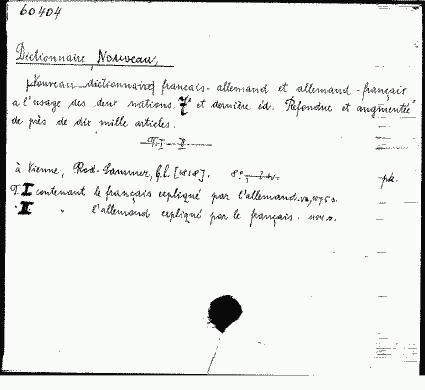 60404
Dictionnaire Nouveau,
Nouveau dictionnaire francais-allemand et allemand-français
a l'usage des deux nations. 7e et dernière éd. Refondue et augmentée
de près de dix mille articles.
T. I - II
à Vienne, Rod. Sammer, [1818]. 8°,
T. I contenant le français expliqué par l'allemand. 1075 s.
" II " l'allemand expliqué par le français.